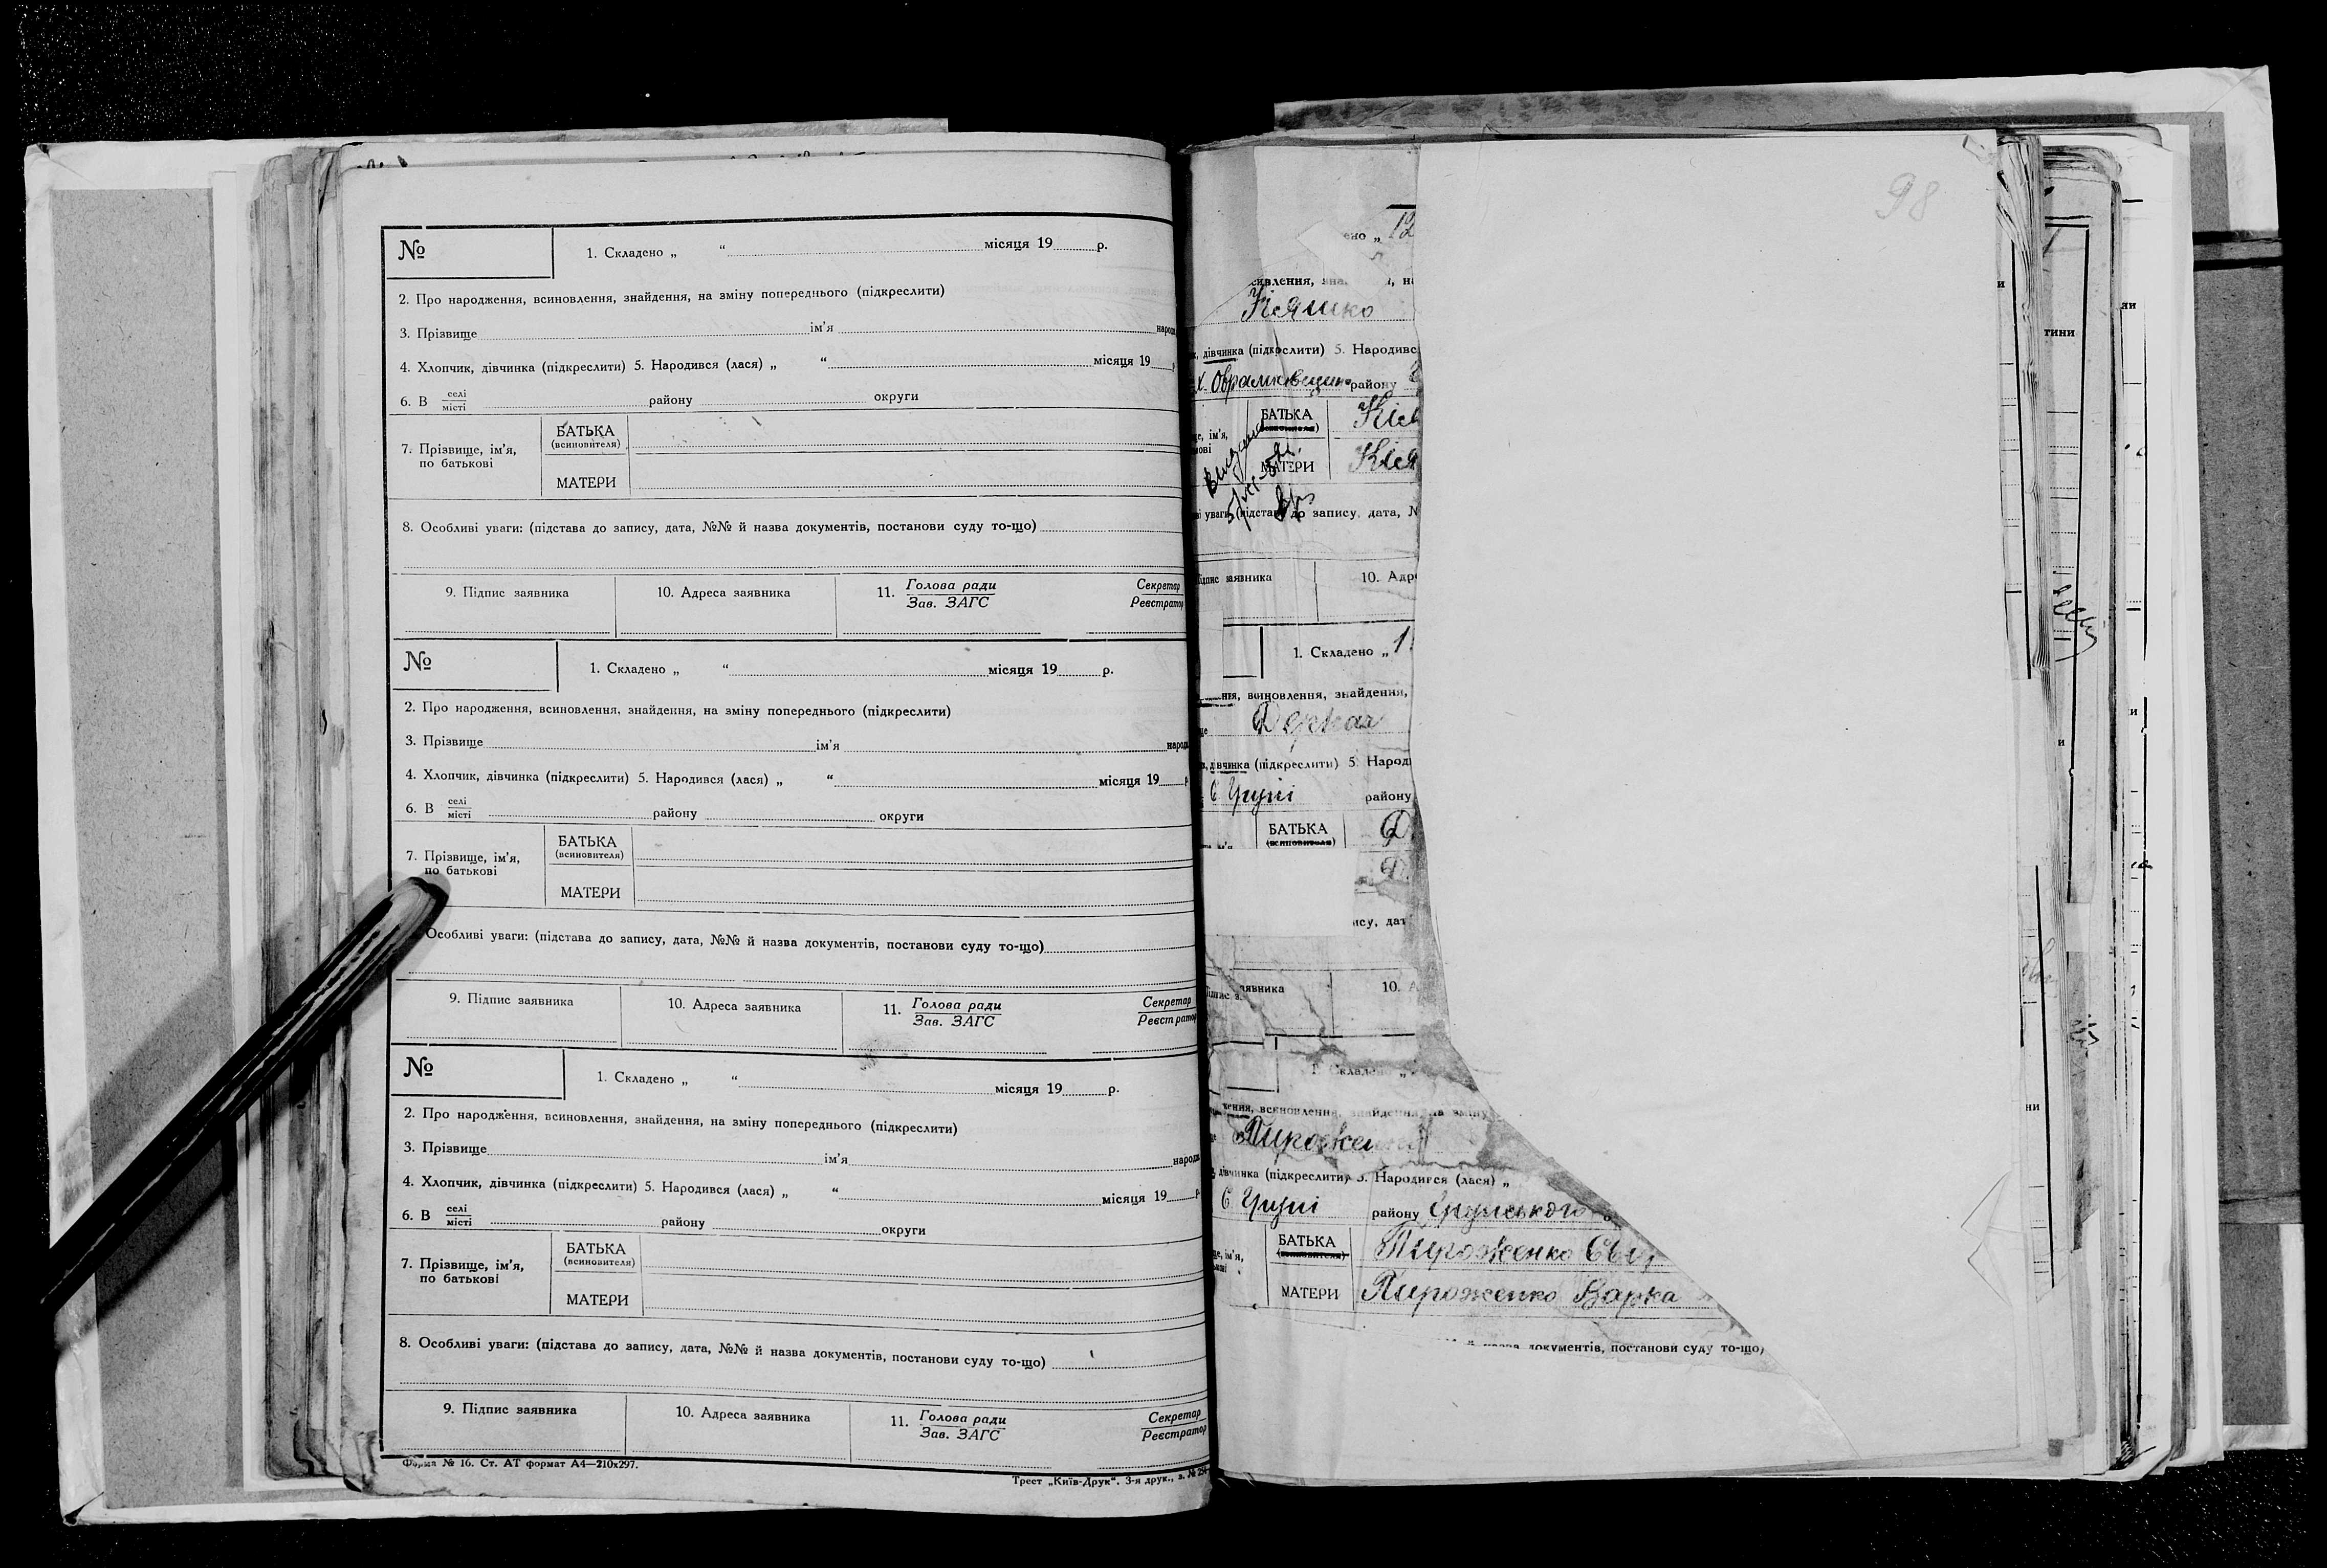 №
1. Складено „ “ місяця 19 р.
2. Про народження, всиновлення, знайдення, на зміну попереднього (підкреслити)
3. Прізвище ім'я народ
4. Хлопчик, дівчинка (підкреслити) 5. Народився (лася) „ “ місяця 19
6. В селі місті району округи
7. Прізвище, ім'я, по батькові
БАТЬКА (всиновителя)
МАТЕРИ
8. Особливі уваги: (підстава до запису, дата, №№ й назва документів, постанови суду то-що)
9. Підпис заявника 10. Адреса заявника 11. Голова ради Зав. ЗАГС Секретар Реєстратор
№
1. Складено „ “ місяця 19 р.
2. Про народження, всиновлення, знайдення, на зміну попереднього (підкреслити)
3. Прізвище ім'я народ
4. Хлопчик, дівчинка (підкреслити) 5. Народився (лася) „ “ місяця 19 р
6. В селі місті району округи
7. Прізвище, ім'я, по батькові
БАТЬКА (всиновителя)
МАТЕРИ
Особливі уваги: (підстава до запису, дата, №№ й назва документів, постанови суду то-що)
9. Підпис заявника 10. Адреса заявника 11. Голова ради Зав. ЗАГС Секретар Реєстратор
№
1. Складено „ “ місяця 19 р.
2. Про народження, всиновлення, знайдення, на зміну попереднього (підкреслити)
3. Прізвище ім'я народ
4. Хлопчик, дівчинка (підкреслити) 5. Народився (лася) „ “ місяця 19 р
6. В селі місті району округи
7. Прізвище, ім'я, по батькові
БАТЬКА (всиновителя)
МАТЕРИ
8. Особливі уваги: (підстава до запису, дата, №№ й назва документів, постанови суду то-що)
9. Підпис заявника 10. Адреса заявника 11. Голова ради Зав. ЗАГС Секретар Реєстратор
Форма № 16. Ст. АТ формат А4—210х297.
Трест „Київ-Друк“. 3-я друк., з. №
98
ено „ 12
сивлення, зна , на
Кіяшко
дівчинка (підкреслити) 5. Народивс
х. району
е, ім'я,
БАТЬКА
МАТЕРИ
Кія
уваги (підстава до запису, дата, №
підпис заявника 10. Адре
1. Складено „ 1
ння, всиновлення, знайдення,
Деркач
дівчинка (підкреслити) 5. Народ
с Груні району
БАТЬКА (всиновителя) Д
Д
ису, дат
Підпис з аявника 10. А
1. Складено „
ення, всиновлення, знайдення, на зміну
Пирожен
дівчинка (підкреслити) 5. Народився (лася) „
с Груні району Грунського о
це, ім'я,
БАТЬКА (всиновителя) Пироженко
МАТЕРИ Пироженко Варка
й назва документів, постанови суду то-що)